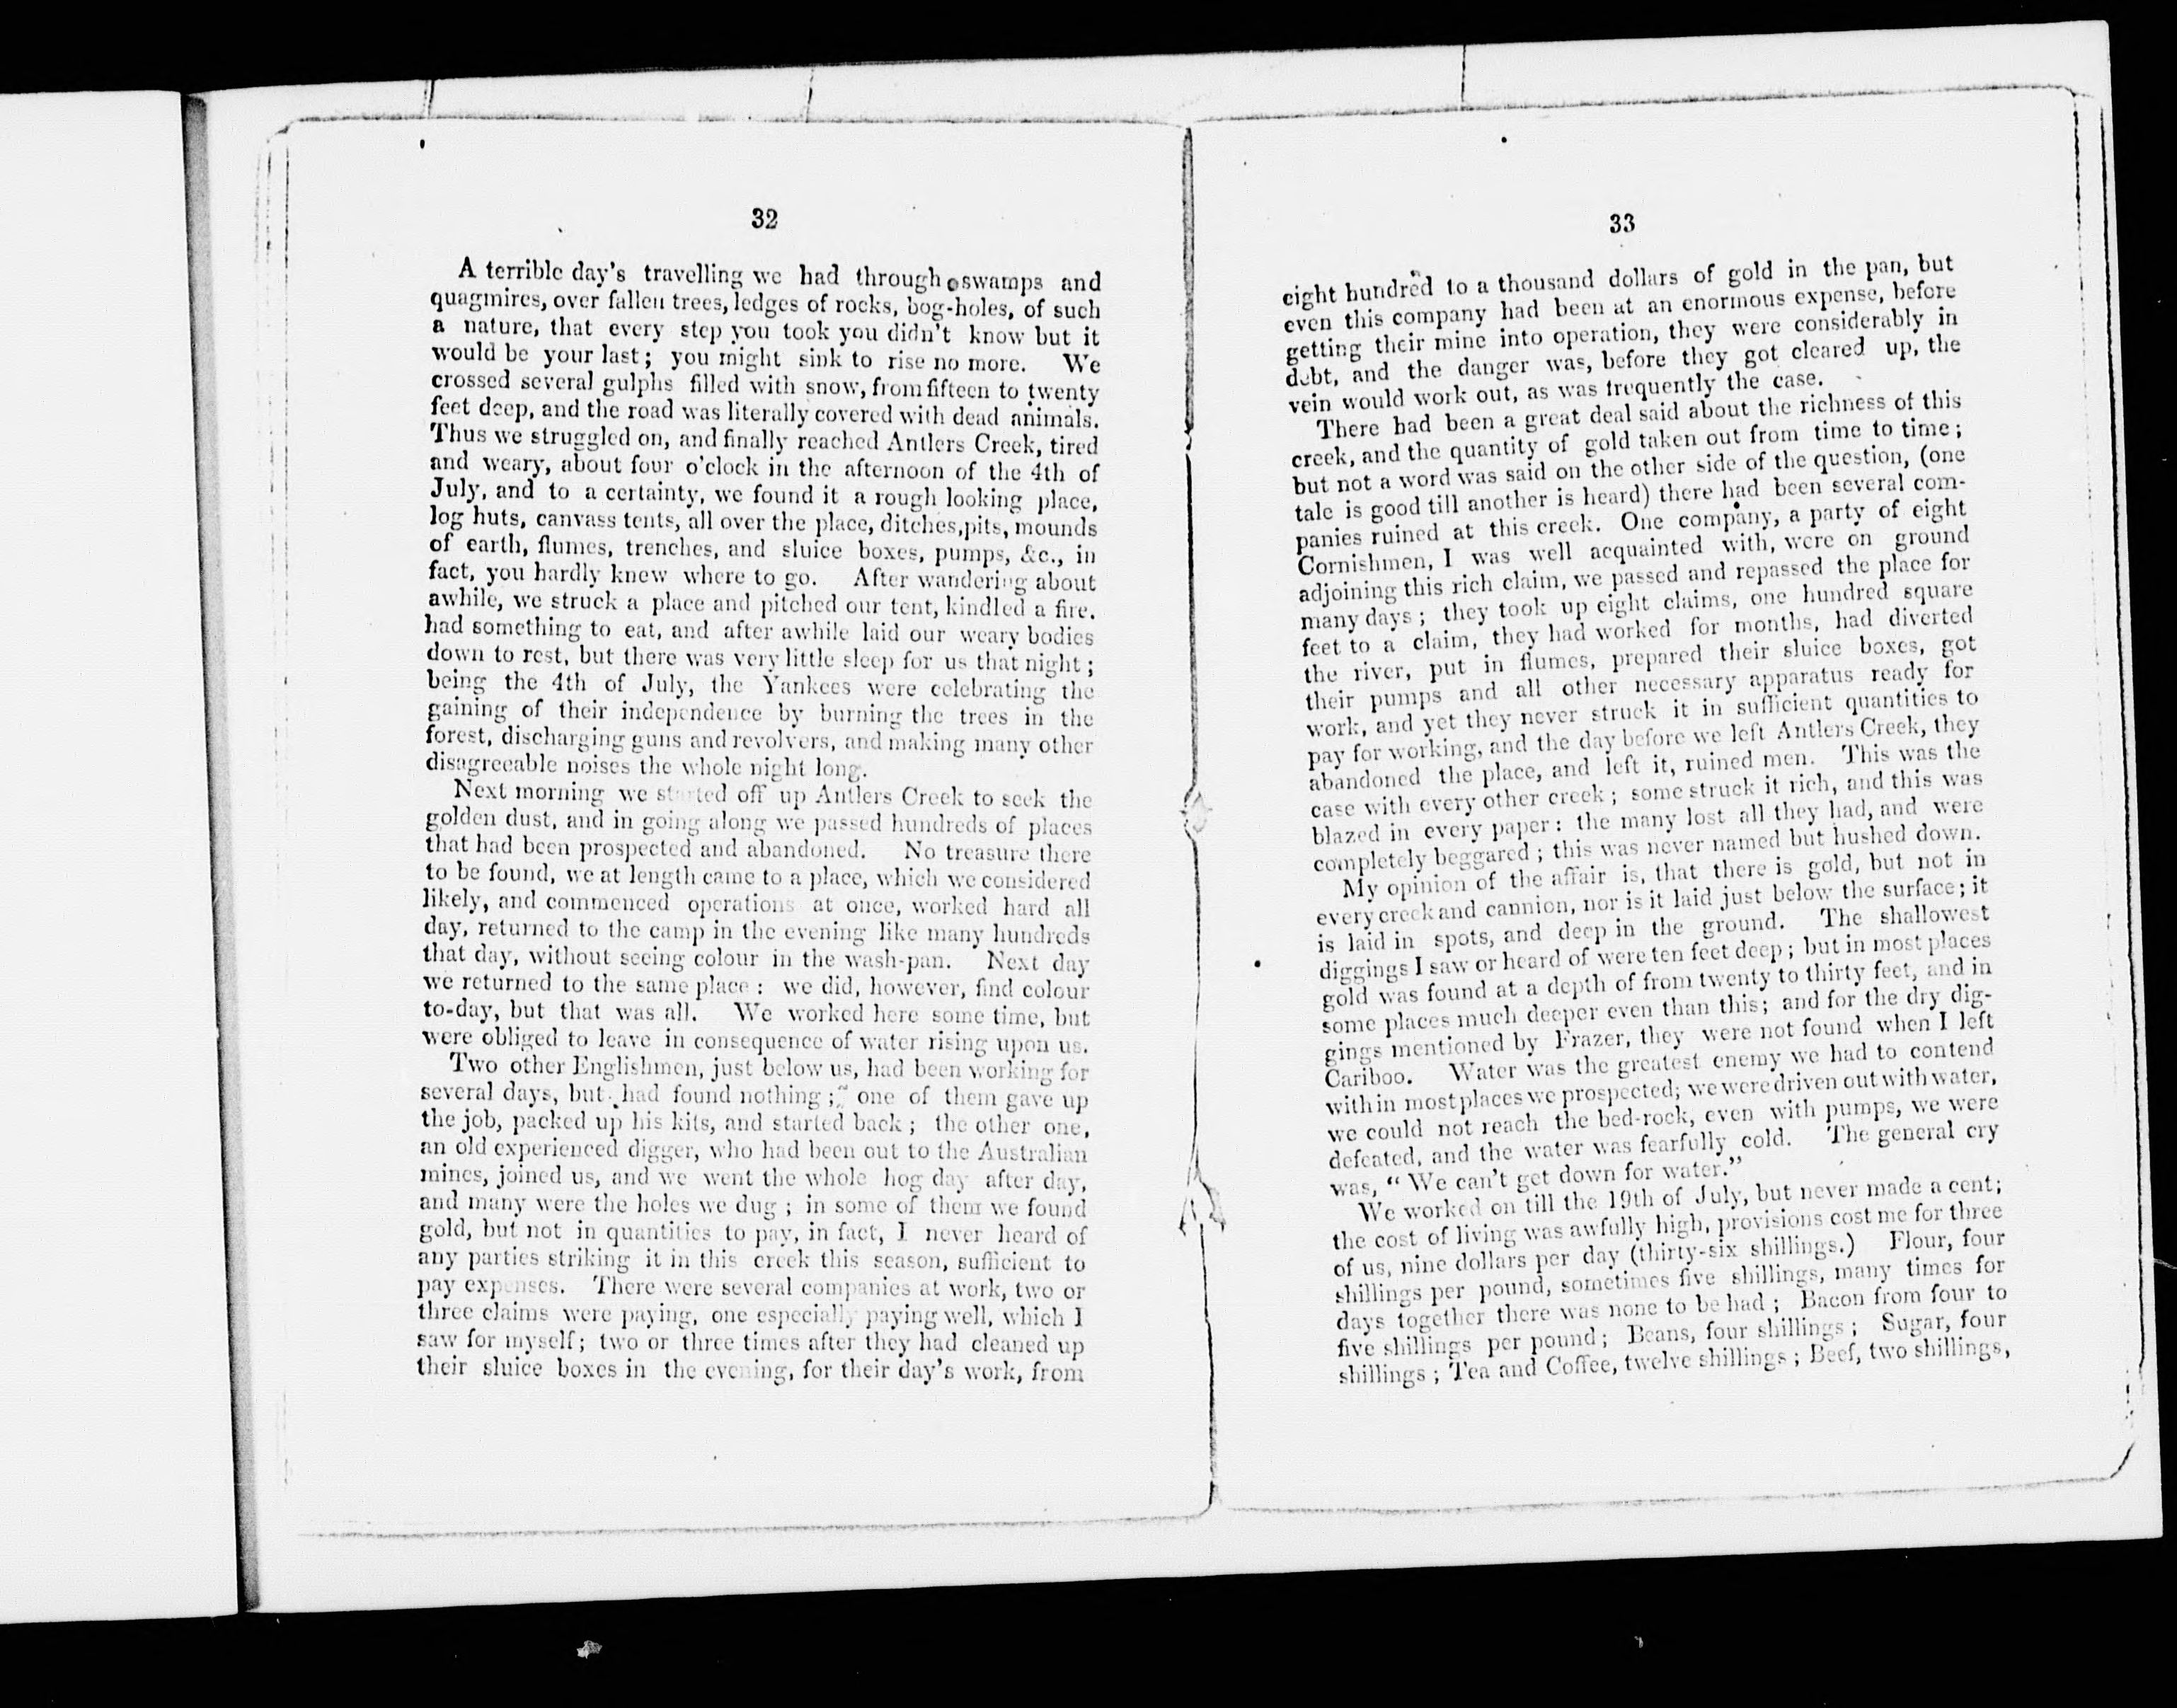 32
A terrible day's travelling we had through swamps and
quagmires, over fallen trees, ledges of rocks, bog-holes, of such
a nature, that every step you took you didn't know but it
would be your last; you might sink to rise no more. We
crossed several gulphs filled with snow, from fifteen to twenty
feet deep, and the road was literally covered with dead animals.
Thus we struggled on, and finally reached Antlers Creek, tired
and weary, about four o'clock in the afternoon of the 4th of
July, and to a certainty, we found it a rough looking place,
log huts, canvass tents, all over the place, ditches, pits, mounds
of earth, flumes, trenches, and sluice boxes, pumps, &c., in
fact, you hardly knew where to go. After wandering about
awhile, we struck a place and pitched our tent, kindled a fire.
had something to eat, and after awhile laid our weary bodies
down to rest, but there was very little sleep for us that night;
being the 4th of July, the Yankees were celebrating the
gaining of their independence by burning the trees in the
forest, discharging guns and revolvers, and making many other
disagreeable noises the whole night long.
Next morning we started off up Antlers Creek to seek the
golden dust, and in going along we passed hundreds of places
that had been prospected and abandoned. No treasure there
to be found, we at length came to a place, which we considered
likely, and commenced operations at once, worked hard all
day, returned to the camp in the evening like many hundreds
that day, without seeing colour in the wash-pan. Next day
we returned to the same place: we did, however, find colour
to-day, but that was all. We worked here some time, but
were obliged to leave in consequence of water rising upon us.
Two other Englishmen, just below us, had been working for
several days, but had found nothing; one of them gave up
the job, packed up his kits, and started back; the other one,
an old experienced digger, who had been out to the Australian
mines, joined us, and we went the whole hog day after day,
and many were the holes we dug; in some of them we found
gold, but not in quantities to pay, in fact, I never heard of
any parties striking it in this creek this season, sufficient to
pay expenses. There were several companies at work, two or
three claims were paying, one especially paying well, which I
saw for myself; two or three times after they had cleaned up
their sluice boxes in the evening, for their day's work, from
33
eight hundred to a thousand dollars of gold in the pan, but
even this company had been at an enormous expense, before
getting their mine into operation, they were considerably in
debt, and the danger was, before they got cleared up, the
vein would work out, as was frequently the case.
There had been a great deal said about the richness of this
creek, and the quantity of gold taken out from time to time;
but not a word was said on the other side of the question, (one
tale is good till another is heard) there had been several com-
panies ruined at this creek. One company, a party of eight
Cornishmen, I was well acquainted with, were on ground
adjoining this rich claim, we passed and repassed the place for
many days; they took up eight claims, one hundred square
feet to a claim, they had worked for months, had diverted
the river, put in flumes, prepared their sluice boxes, got
their pumps and all other necessary apparatus ready for
work, and yet they never struck it in sufficient quantities to
pay for working, and the day before we left Antlers Creek, they
abandoned the place, and left it, ruined men. This was the
case with every other creek; some struck it rich, and this was
blazed in every paper: the many lost all they had, and were
completely beggared; this was never named but hushed down.
My opinion of the affair is, that there is gold, but not in
every creek and cannion, nor is it laid just below the surface; it
is laid in spots, and deep in the ground. The shallowest
diggings I saw or heard of were ten feet deep; but in most places
gold was found at a depth of from twenty to thirty feet, and in
some places much deeper even than this; and for the dry dig-
gings mentioned by Frazer, they were not found when I left
Cariboo. Water was the greatest enemy we had to contend
with in most places we prospected; we were driven out with water,
we could not reach the bed-rock, even with pumps, we were
defeated, and the water was fearfully cold. The general cry
was, "We can't get down for water."
We worked on till the 19th of July, but never made a cent;
the cost of living was awfully high, provisions cost me for three
of us, nine dollars per day (thirty-six shillings.) Flour, four
shillings per pound, sometimes five shillings, many times for
days together there was none to be had; Bacon from four to
five shillings per pound; Beans, four shillings; Sugar, four
shillings; Tea and Coffee, twelve shillings; Beef, two shillings,